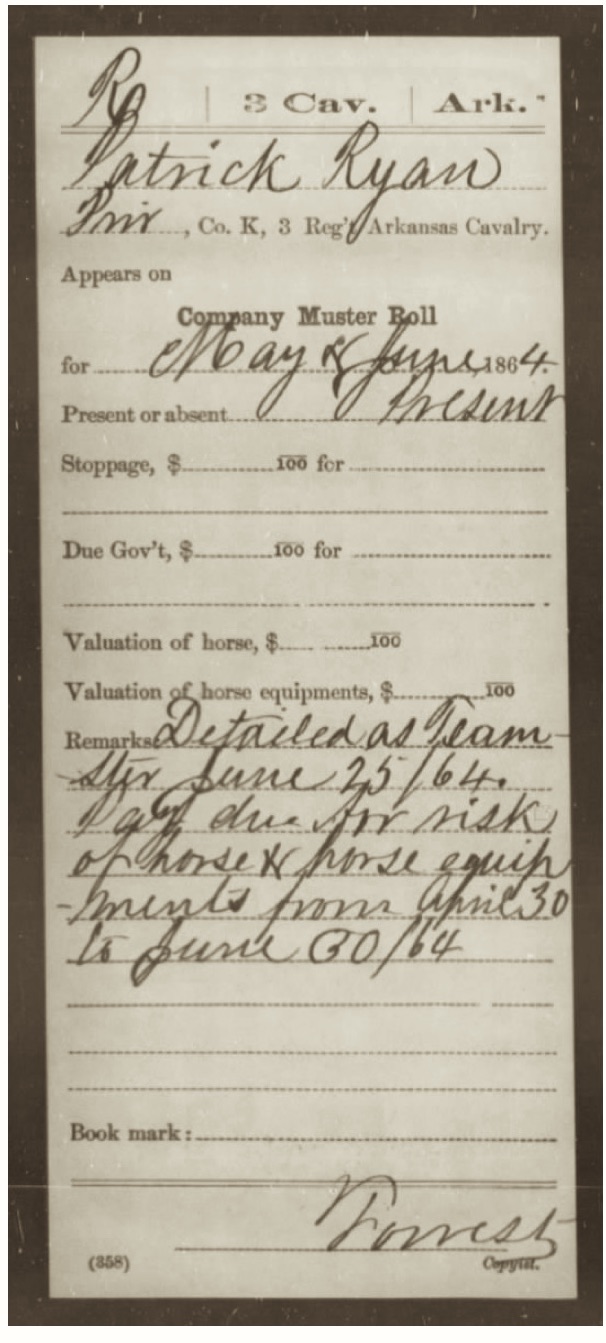 R | 3 Cav. | Ark.
Patrick Ryan
Priv, Co. K, 3 Reg't Arkansas Cavalry.
Appears on
Company Muster Roll
for May & June, 1864.
Present or absent Present
Stoppage, $ 100 for
Due Gov't, $ 100 for
Valuation of horse, $ 100
Valuation of horse equipments, $ 100
Remarks: Detailed as Team-
-ster June 25/64.
Pay due for risk
of horse & horse equip
-ments from April 30
to June 30/64
Book mark:
Forrest
(358) Copyist.